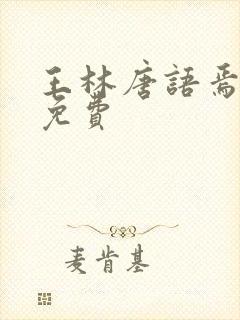 王林唐語焉
免費
麦肯基